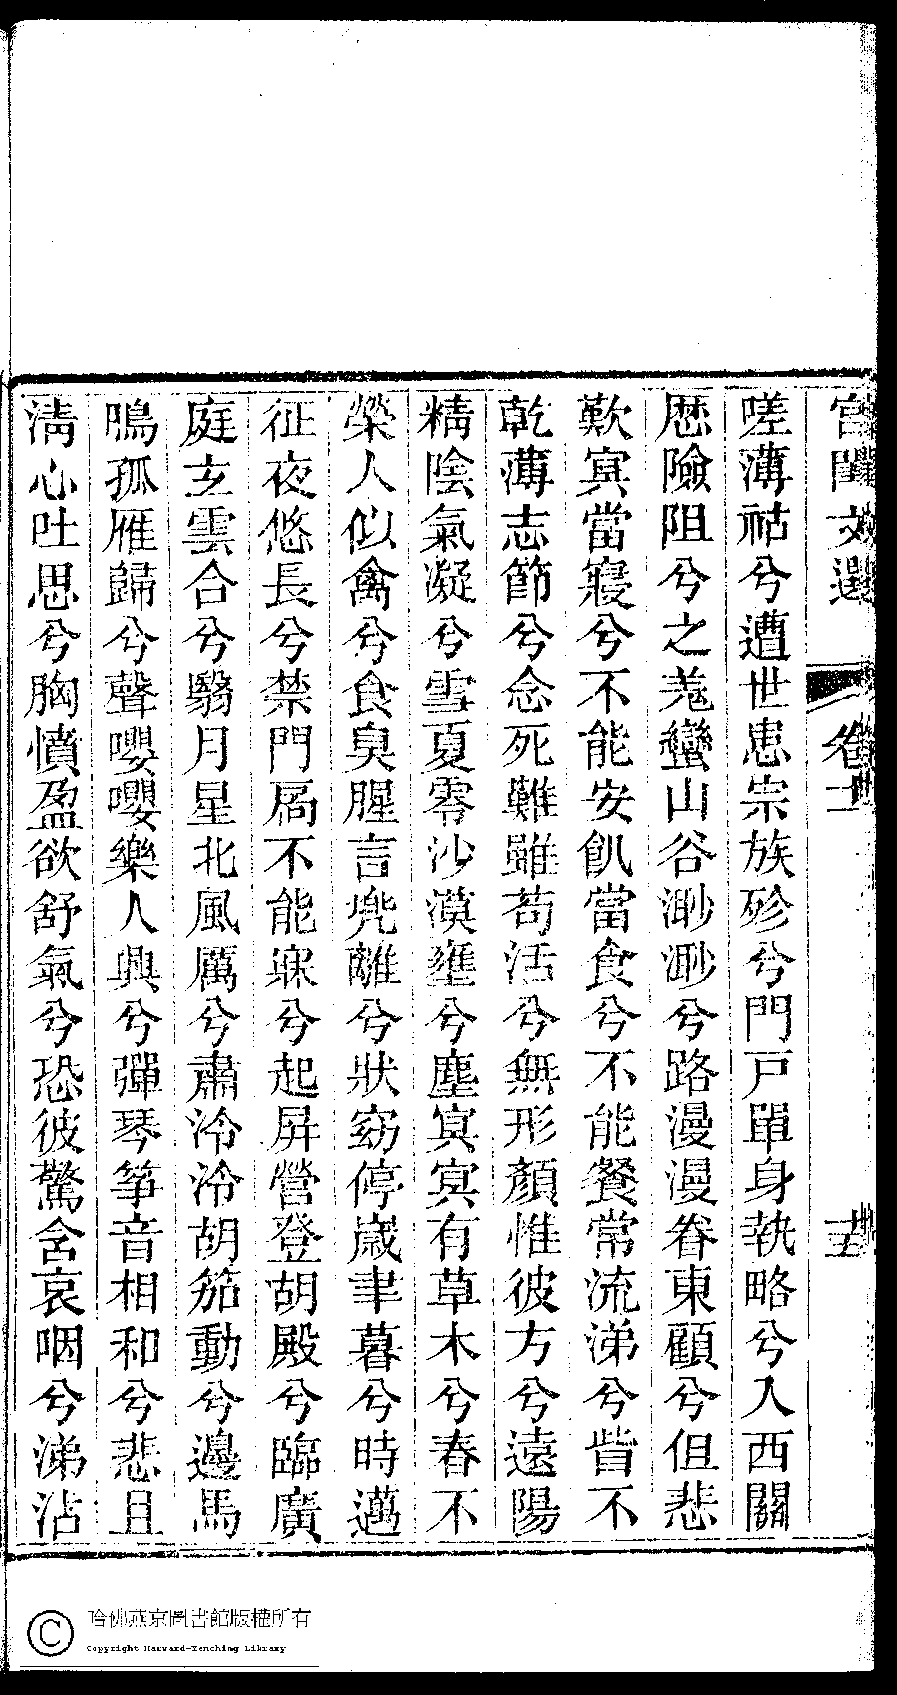 宮閨文選 卷十一 十五
嗟薄祜兮遭世患宗族殄兮門戸單身執略兮入西關
歷險阻兮之羗蠻山谷渺渺兮路漫漫眷東顧兮但悲
歎寘當寢兮不能安飢當食兮不能餐常流涕兮眥不
乾薄志節兮念死難雖茍活兮無形顏惟彼方兮遠陽
精陰氣凝兮雪夏零沙漠壅兮塵冥冥有草木兮春不
榮人似禽兮食臭腥言兠離兮狀窈停歲聿暮兮時邁
征夜悠長兮禁門扃不能寐兮起屏營登胡殿兮臨廣
庭玄雲合兮翳月星北風厲兮肅泠泠胡笳動兮邊馬
鳴孤雁歸兮聲嚶嚶樂人興兮彈琴筝音相和兮悲且
淸心吐思兮胸憤盈欲舒氣兮恐彼驚含哀咽兮涕沾
哈佛燕京圖書館版權所有
© Copyright Harvard-Yenching Library